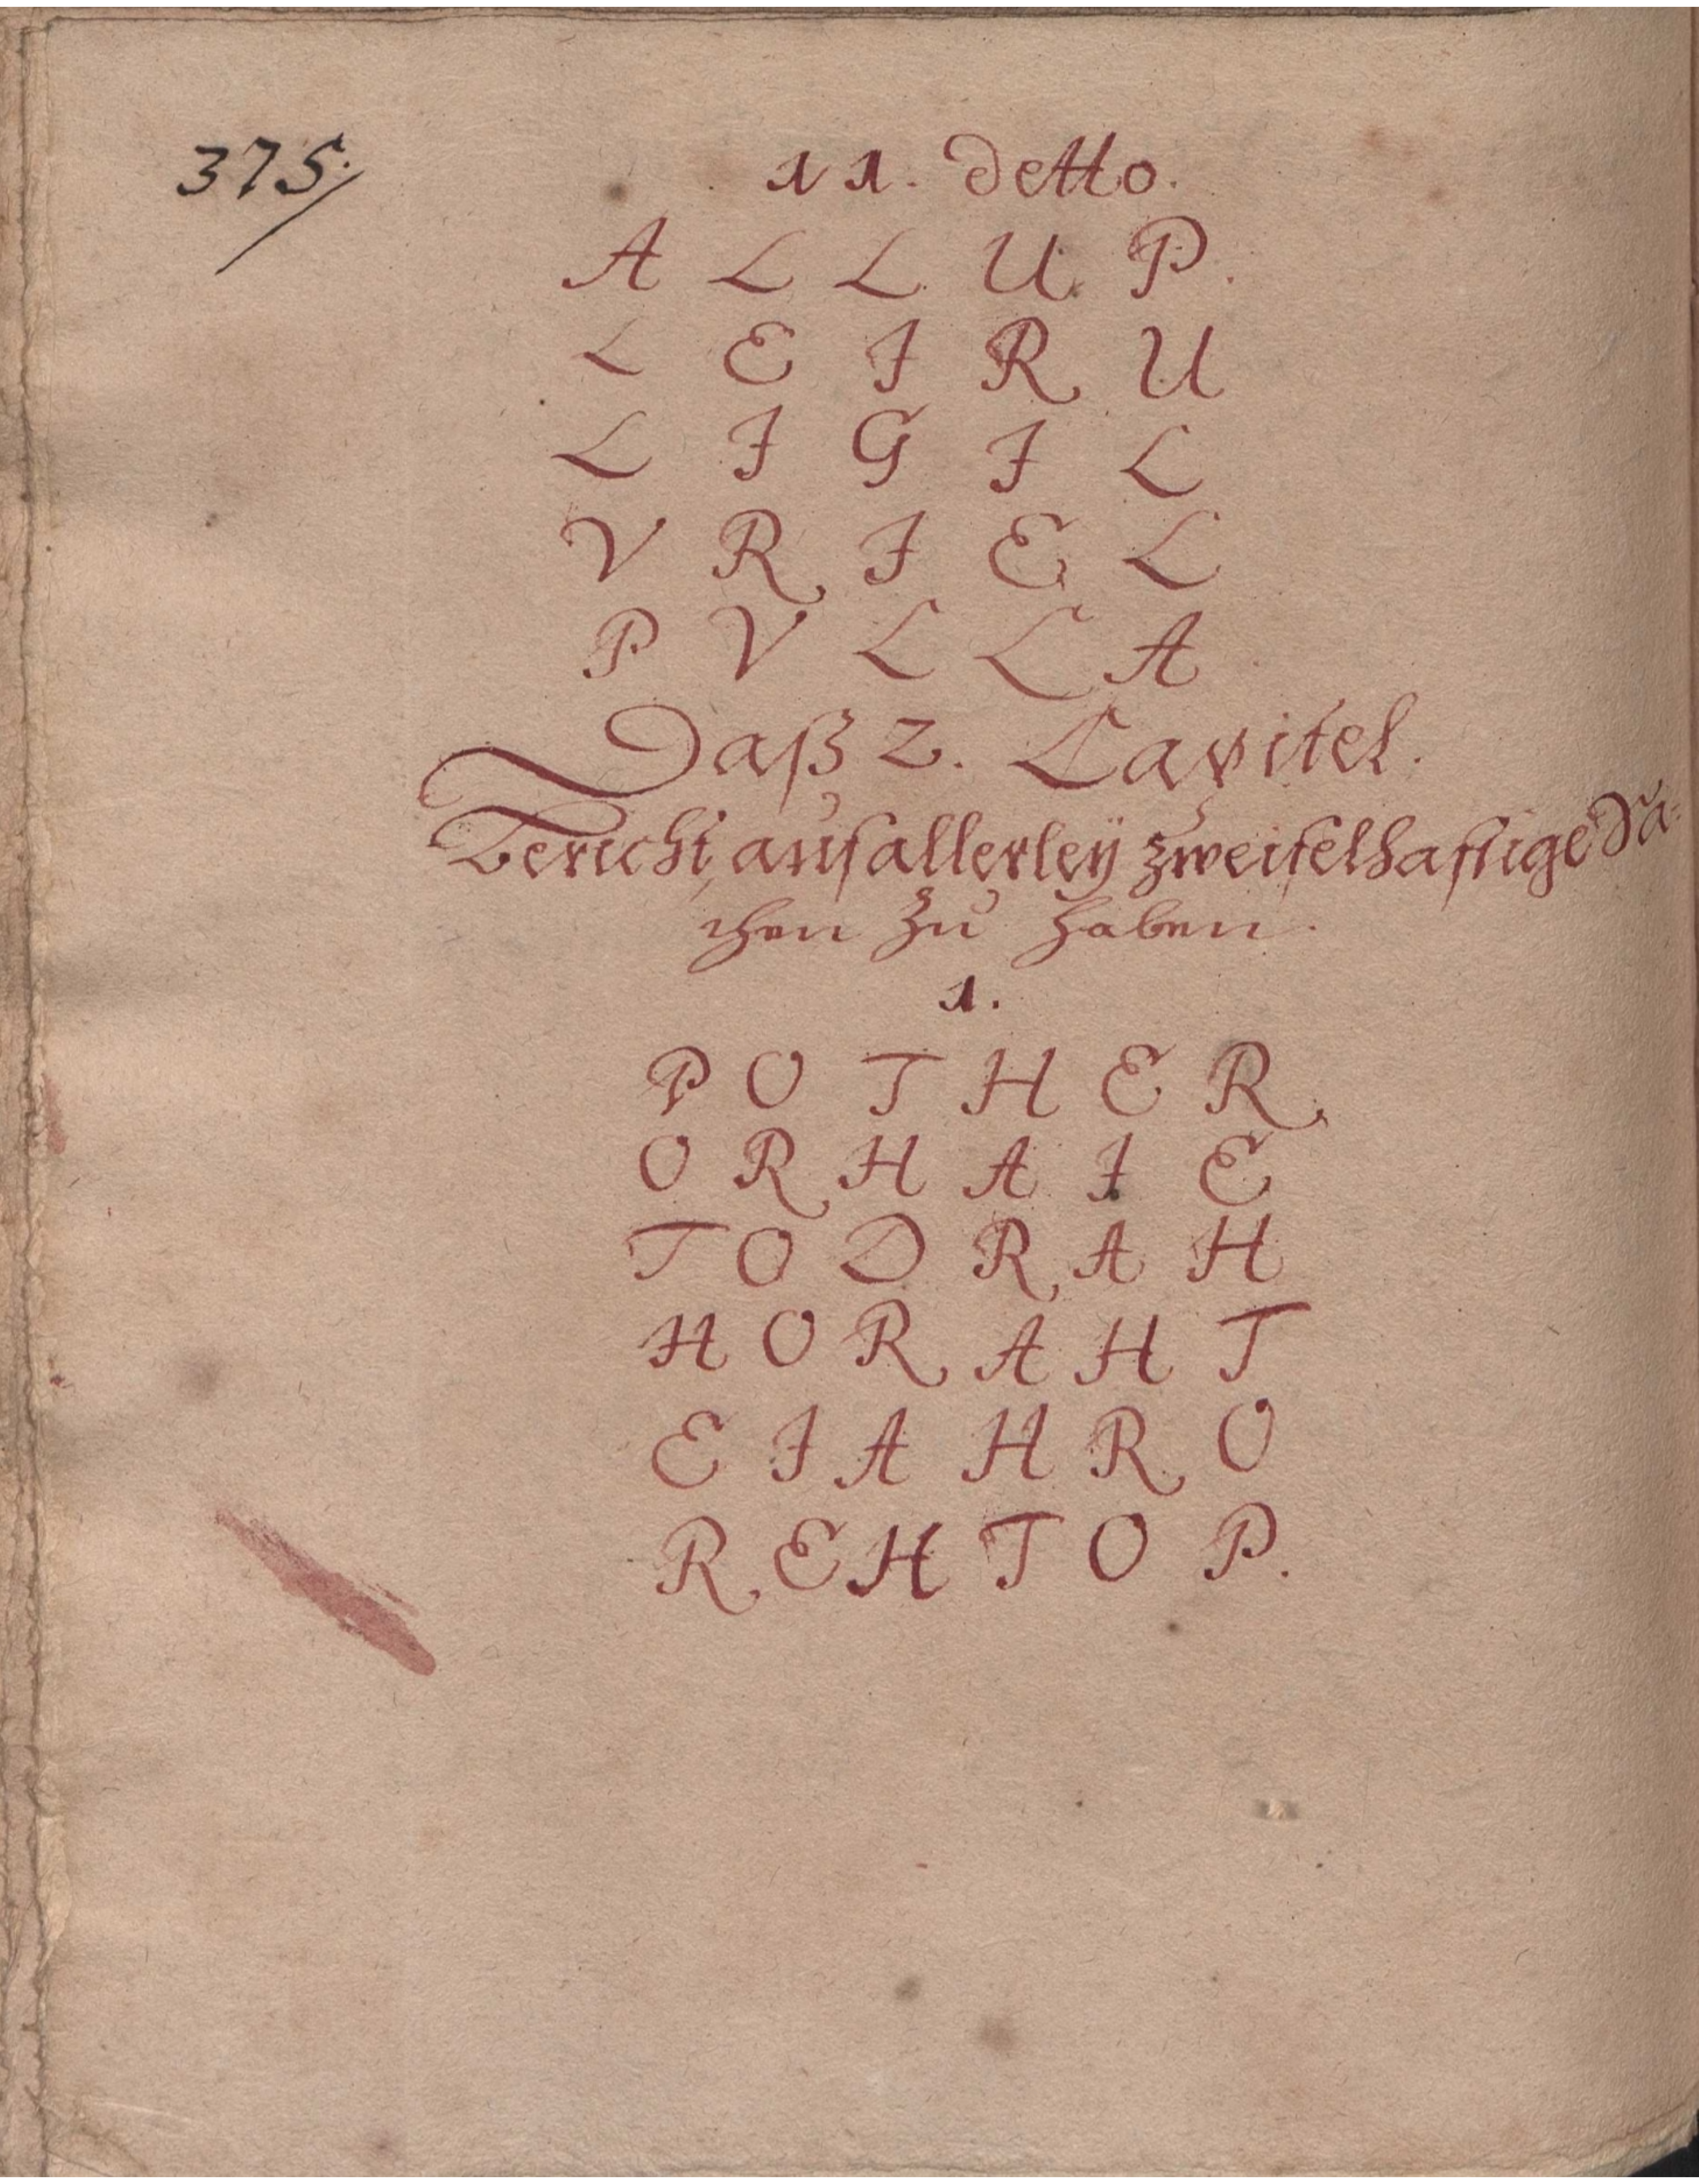 375.
11. detto.
A L L U P.
L E I R U
L I G I L
V R I E L
P V L L A
Daß 2. Capitel.
Bericht auf allerleÿ zweifelhafftige Sa-
chen zu haben.
1.
P O T H E R
O R H A I E
T O D R A H
H O R A H T
E I A H R O
R E H T O P.